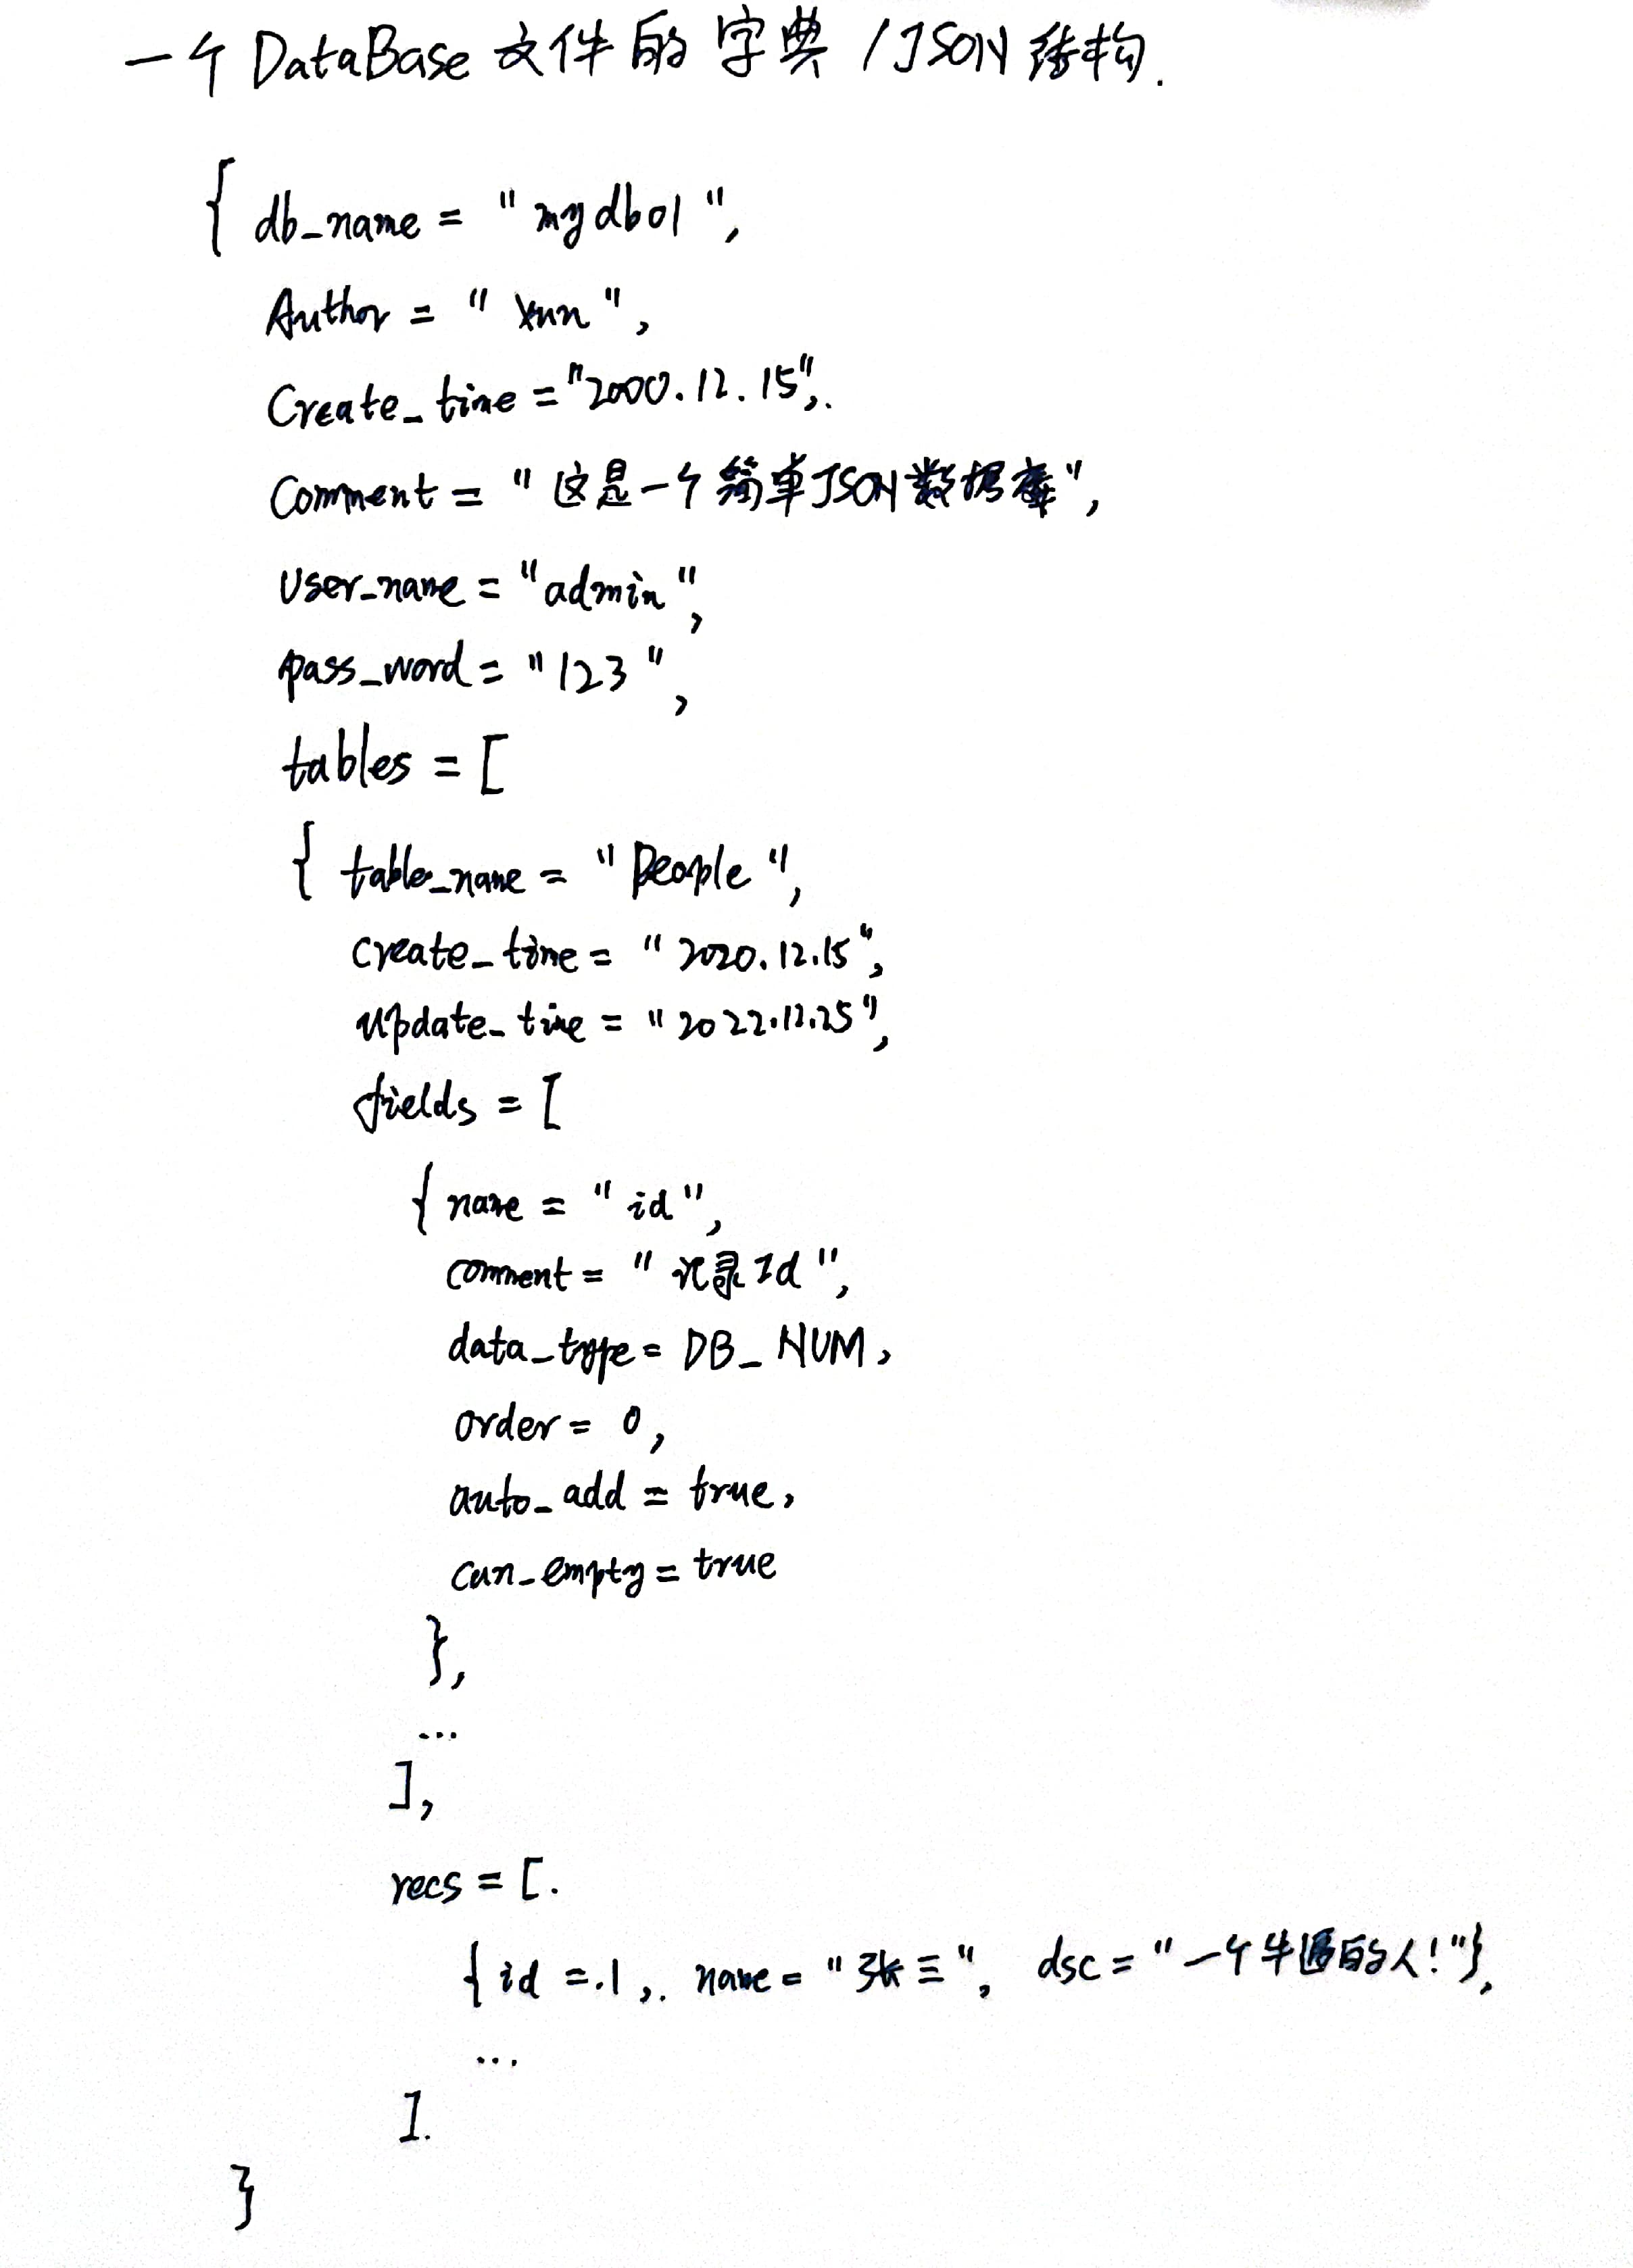 一个DataBase文件的字典/JSON结构.
{ db_name = "mydb01",
Author = "xnn",
Create_time = "2000.12.15",.
Comment = "这是一个简单JSON数据库",
User_name = "admin",
pass_word = "123",
tables = [
{ table_name = "People",
create_time = "2020.12.15",
update_time = "2022.12.25",
fields = [
{ name = "id",
comment = "记录Id",
data_type = DB_NUM,
order = 0,
auto_add = true,
can_empty = true
},
...
],
recs = [.
{ id =.1,. name = "张三", dsc = "一个牛逼的人!"},
...
].
}